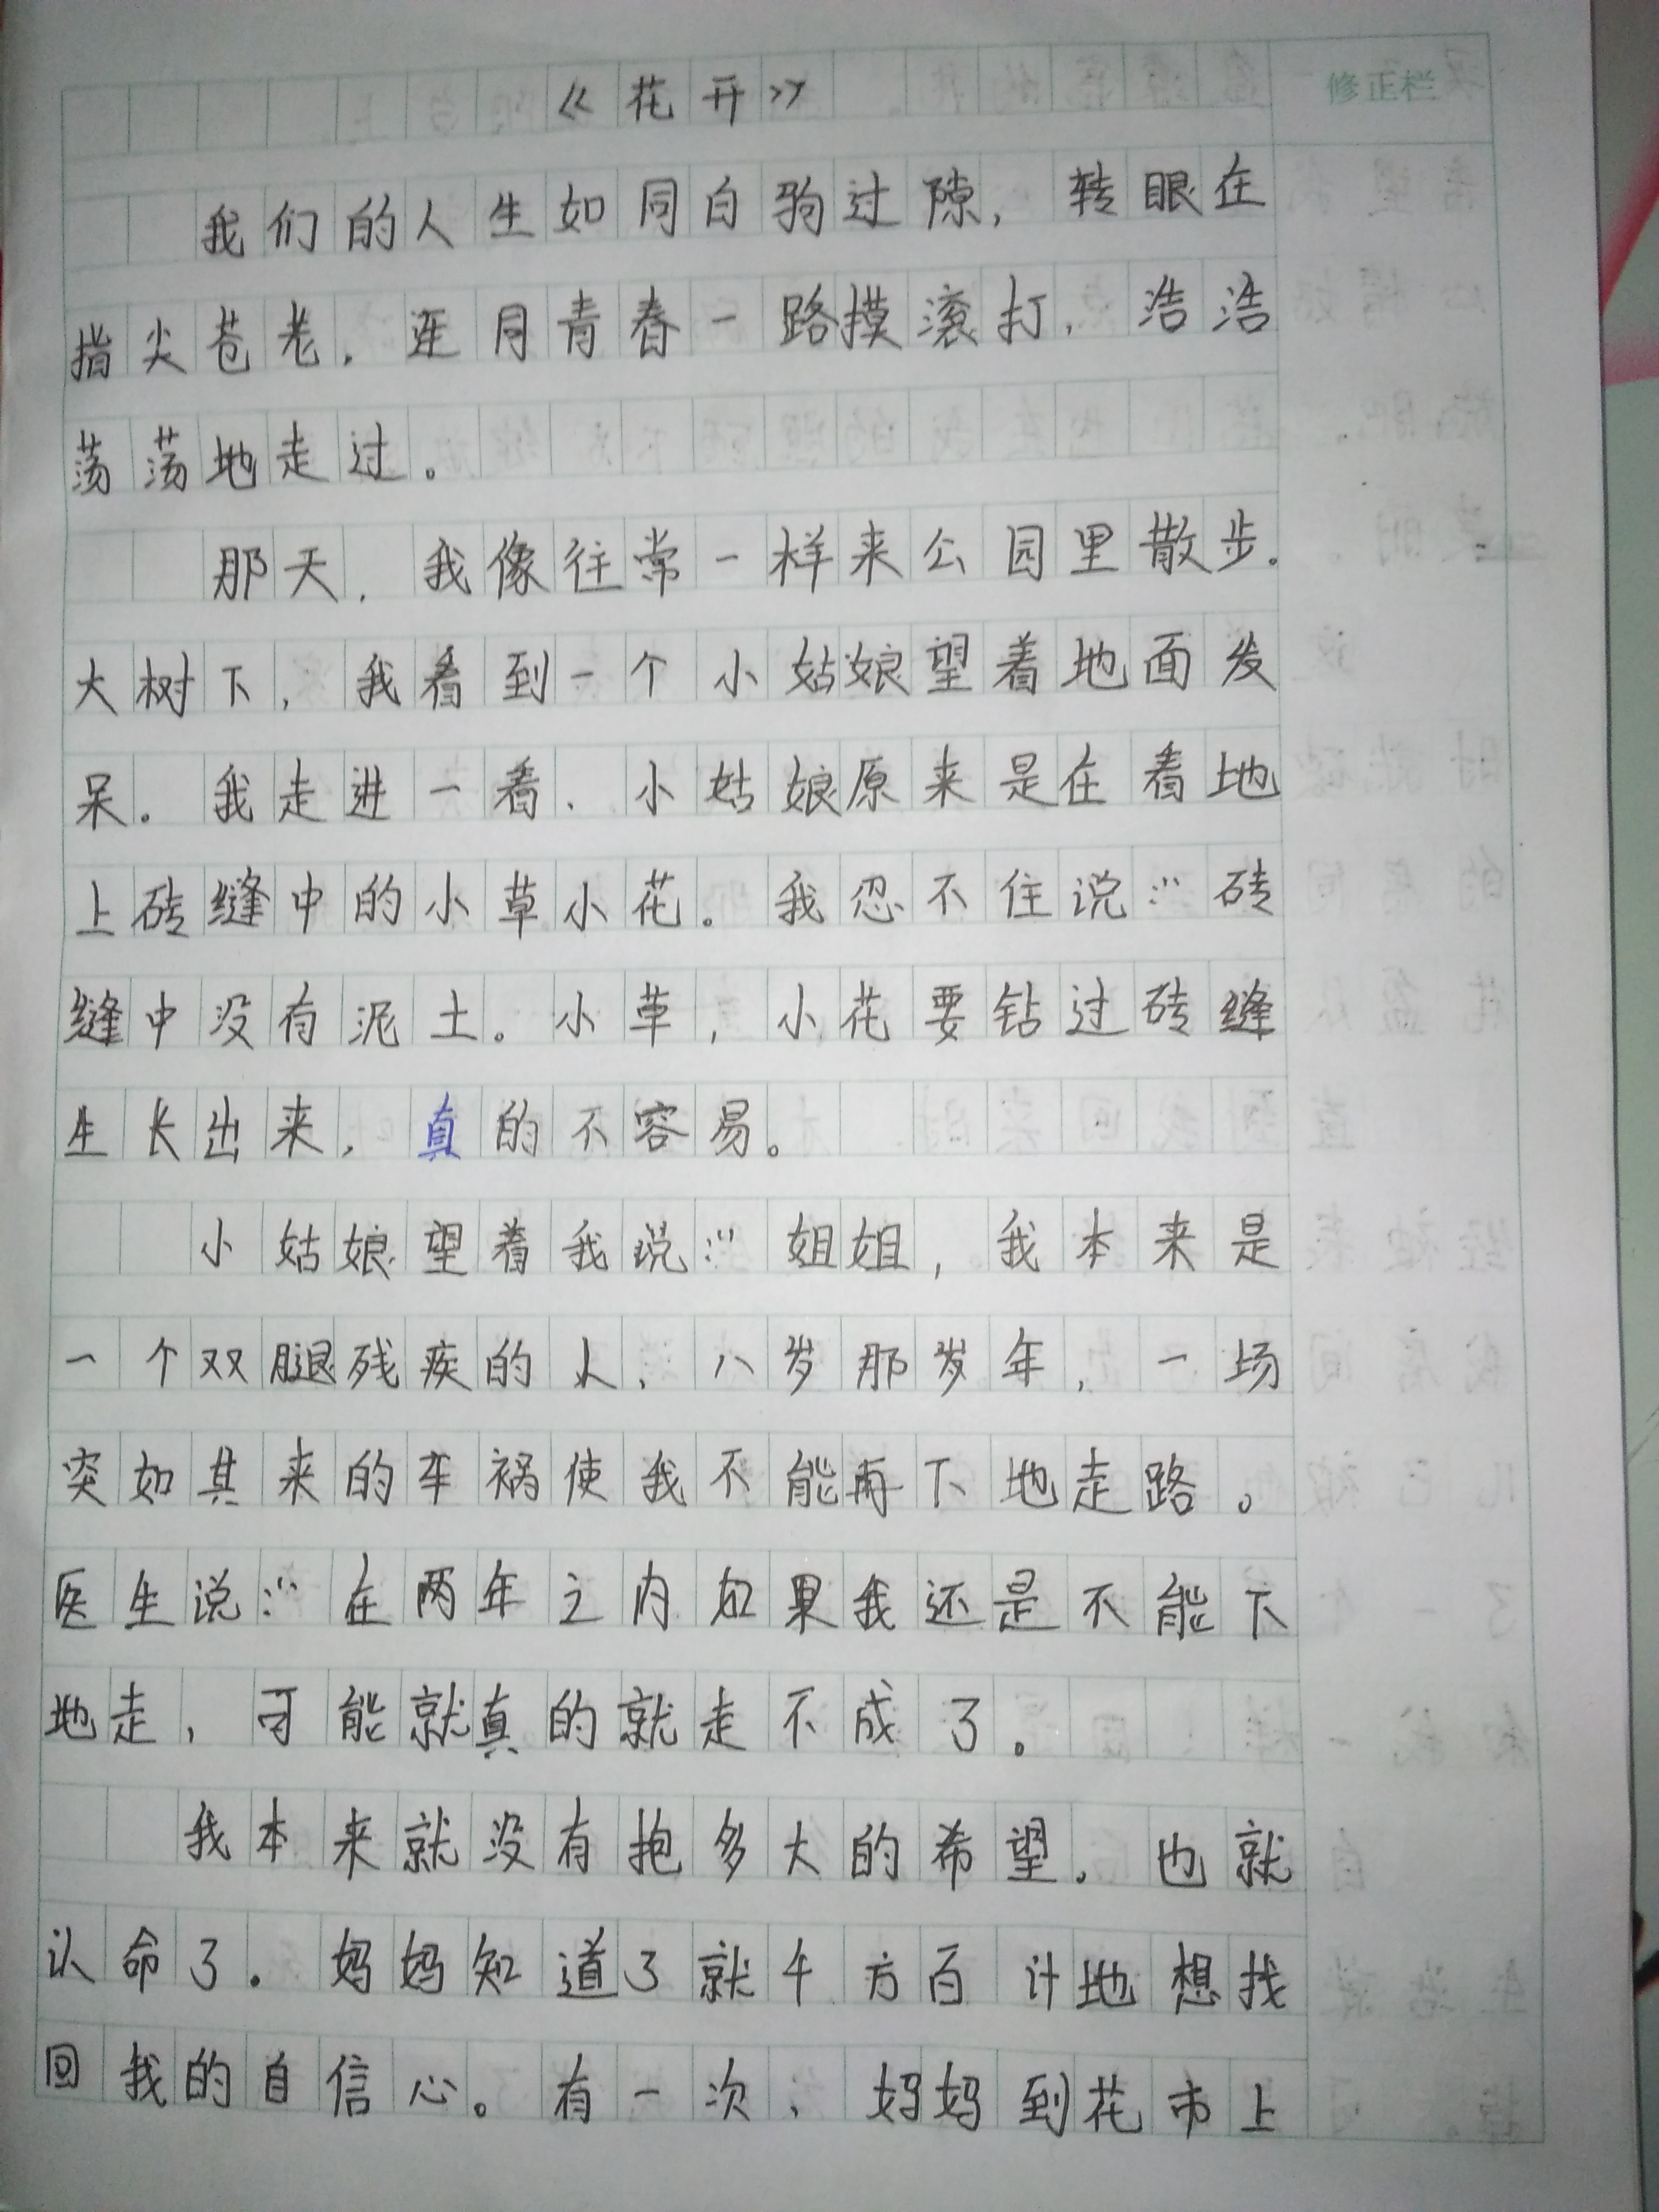 《花开》
修正栏
我们的人生如同白驹过隙，转眼在
指尖苍老，连同青春一路摸滚打，浩浩
荡荡地走过。
那天，我像往常一样来公园里散步.
大树下，我看到一个小姑娘望着地面发
呆。我走进一看，小姑娘原来是在看地
上砖缝中的小草小花。我忍不住说：“砖
缝中没有泥土。小草，小花要钻过砖缝
生长出来，真的不容易。
小姑娘望着我说：“姐姐，我本来是
一个双腿残疾的人，八岁那岁年，一场
突如其来的车祸使我不能再下地走路。
医生说：“在两年之内如果我还是不能下
地走，可能就真的就走不成了。
我本来就没有抱多大的希望。也就
认命了。妈妈知道了就千方百计地想找
回我的自信心。有一次，妈妈到花市上